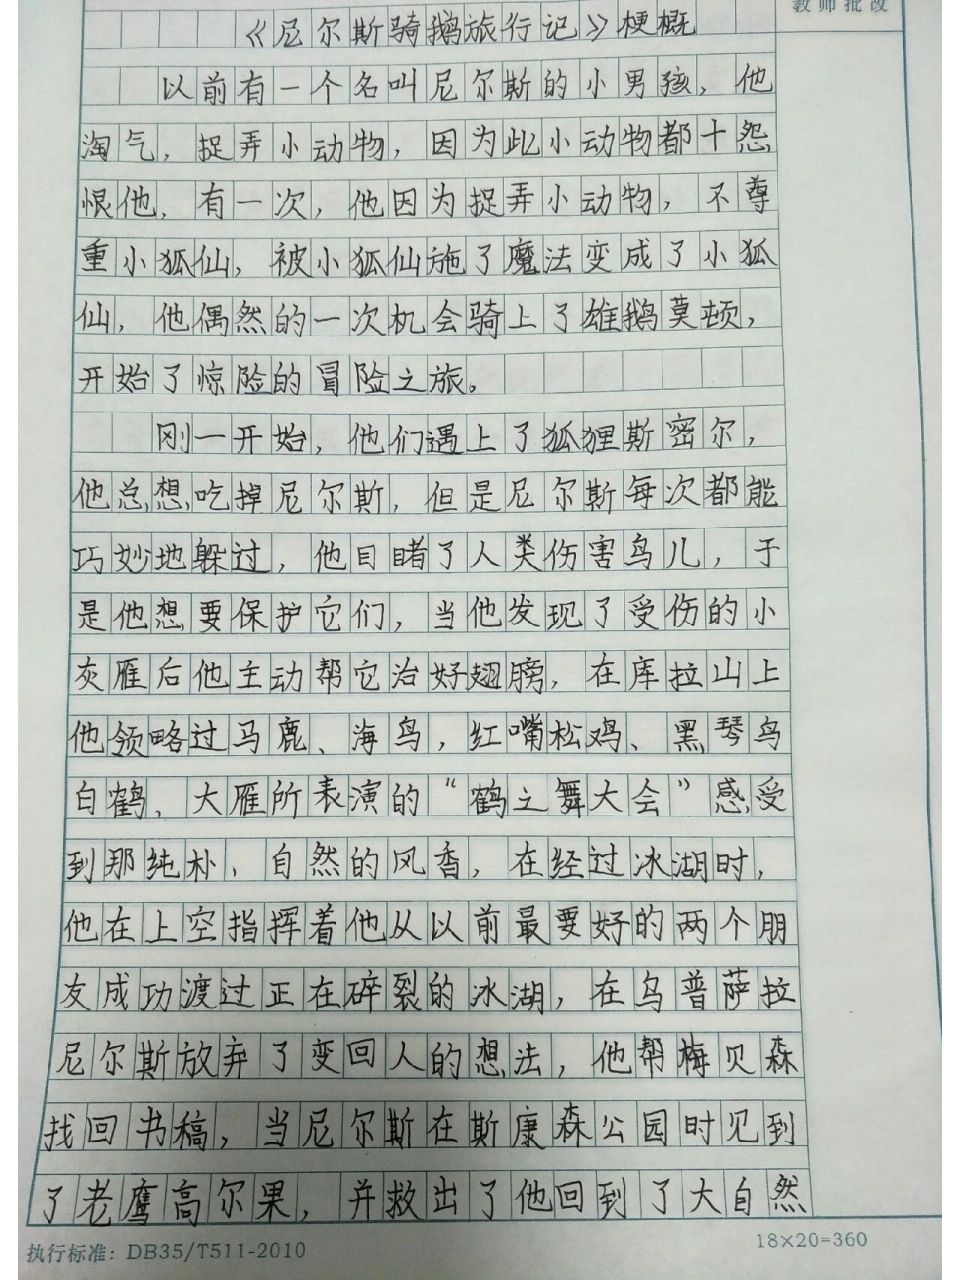 教师批改
《尼尔斯骑鹅旅行记》梗概
以前有一个名叫尼尔斯的小男孩，他
淘气，捉弄小动物，因为此小动物都十怨
恨他，有一次，他因为捉弄小动物，不尊
重小狐仙，被小狐仙施了魔法变成了小狐
仙，他偶然的一次机会骑上了雄鹅莫顿，
开始了惊险的冒险之旅。
刚一开始，他们遇上了狐狸斯密尔，
他总想吃掉尼尔斯，但是尼尔斯每次都能
巧妙地躲过，他目睹了人类伤害鸟儿，于
是他想要保护它们，当他发现了受伤的小
灰雁后他主动帮它治好翅膀，在库拉山上
他领略过马鹿、海鸟，红嘴松鸡、黑琴鸟
白鹤、大雁所表演的“鹤之舞大会”感受
到那纯朴、自然的风香，在经过冰湖时，
他在上空指挥着他从以前最要好的两个朋
友成功渡过正在碎裂的冰湖，在乌普萨拉
尼尔斯放弃了变回人的想法，他帮梅贝森
找回书稿，当尼尔斯在斯康森公园时见到
了老鹰高尔果，并救出了他回到了大自然
执行标准：DB35/T511-2010
18×20=360